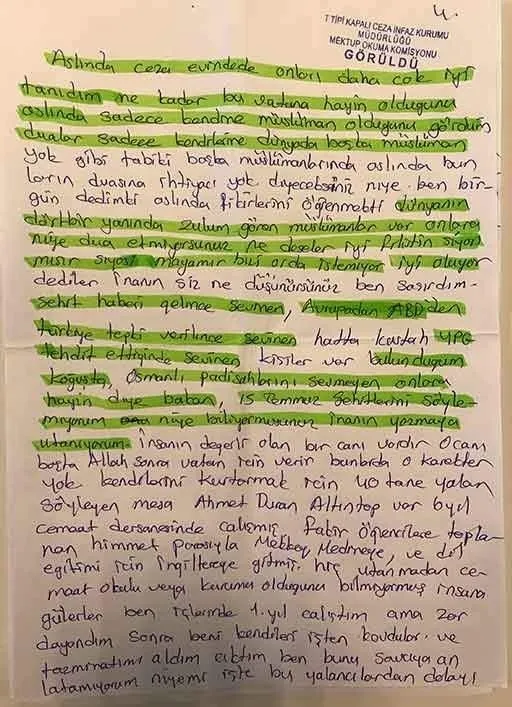 4.
T TİPİ KAPALI CEZA İNFAZ KURUMU
MÜDÜRLÜĞÜ
MEKTUP OKUMA KOMİSYONU
GÖRÜLDÜ
Aslında ceza evindede onları daha çok iyi
tanıdım ne kadar bu vatana hayin olduğunu
aslında sadece kendine müslüman olduğunu gördüm
dualar sadece kendilerine dünyada başka müslüman
yok gibi tabiki başka müslümanlarında aslında bun
ların duasına ihtiyacı yok diyeceksiniz niye. ben bir-
gün dedimki aslında fikirlerini öğenmekti dünyanın
dört bir yanında zulum gören müslümanlar var onlara
niye dua etmiyorsunuz ne deseler iyi Filistin siyon
mısır siyosi mayamır bizi orda istemiyor iyi oluyor
dediler inanın siz ne düşünürsünüz ben şaşırdım-
şehit haberi gelince sevinen, Avrupadan ABD'den
türkiye tepki verilince sevinen hatta küstah YPG
tehdit ettiğinde sevinen kişiler var bulunduğum
koğuşta, osmanlı padişahlarını sevmeyen onlara
hayin diye bakan, 15 Temmuz şehitlerini söyle-
miyorum niye biliyormusunuz inanın yazmaya
utanıyorum. İnsanın değerli olan bir canı vardır O canı
başta Allah sonra vatan için verir bunlarda o karekter
yok kendilerini kurtarmak için 40 tane yalan
söyleyen mesa Ahmet Duran Altıntop var 8 yıl
cemaat dersanesinde çalışmış fakir öğrencilere topla-
nan himmet parasıyla Mekkey Medineye, ve dil
eğitimi için ingiltereye gitmiş. hiç utanmadan ce-
maat okulu veya kurumu olduğunu bilmiyormuş insana
gülerler ben işlerinde 1. yıl çalıştım ama zor
dayandım sonra beni kendileri işten kovdular. ve
tazminatımı aldım çıktım ben bunu savcıya an
latamıyorum niyemi işte bu yalancılardan dolayı